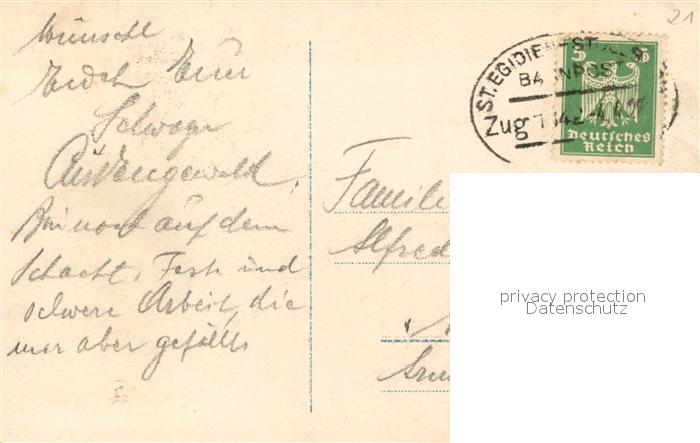 21
wünscht
Euch Euer
Schwager
Bin noch auf dem
Schacht. Feste und
schwere Arbeit, die
mir aber gefällt
ST. EGIDIEN-ST
BAHNPOST
Zug
5 5
Deutsches
Reich
Familie
Alfred
privacy protection
Datenschutz